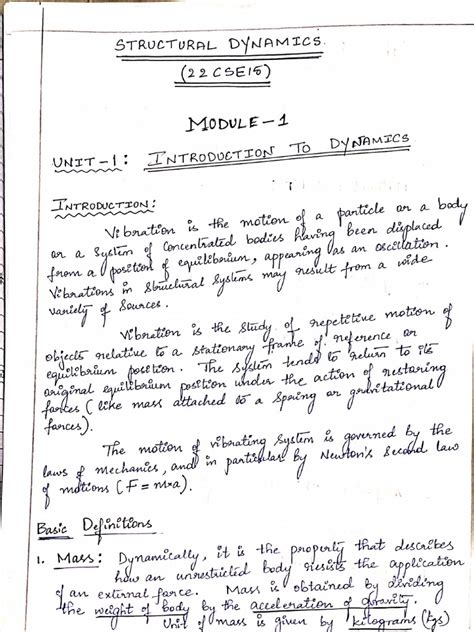 STRUCTURAL DYNAMICS.
(22CSE15)
MODULE-1
UNIT-1: INTRODUCTION TO DYNAMICS
INTRODUCTION:
Vibration is the motion of a particle or a body
or a system of concentrated bodies having been displaced
from a position of equilibrium, appearing as an oscillation.
Vibrations in structural systems may result from a wide
variety of sources.
Vibration is the study of repetitive motion of
objects relative to a stationary frame of reference or
equilibrium position. The system tends to return to its
original equilibrium position under the action of restoring
forces (like mass attached to a spring or gravitational
forces).
The motion of vibrating system is governed by the
laws of mechanics, and in particular by Newton's second law
of motions (F=m.a).
Basic Definitions
1. Mass: Dynamically, it is the property that describes
how an unrestricted body resists the application
of an external force. Mass is obtained by dividing
the weight of body by the acceleration of gravity.
Unit of mass is given by kilograms (kgs)